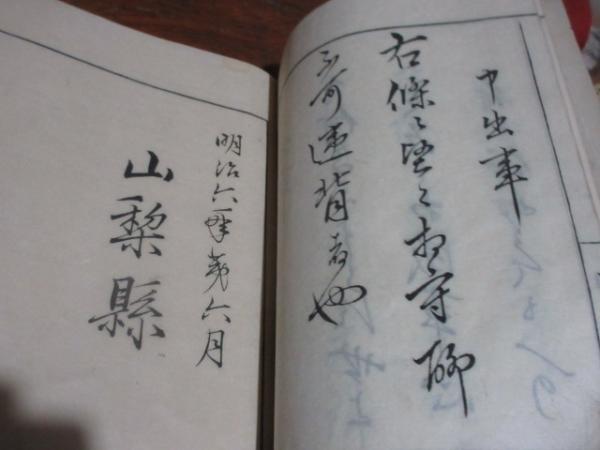 申出事
右條々堅々相守聊
不可違背者也
明治六年第六月
山梨縣